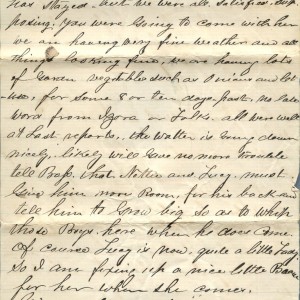 has stayed. but we were all satisfied sup
posing. You were going to come with her
we are having very fine weather and all
things looking fine, we are having lots
of Garden vegetables such as Onions and let
for some 8 or ten days past. no late
word from or Folks. all were well
at last reports. the Watter is Going down
nicely. likely will Give no more trouble
tell that Nellie and Lucy must
Give him more Room, for his back and
tell him to Grow big so as to whip
those Boys here when he does come
Of course Lucy is now, quite a little Lady,
So I am fixing up a nice little
for her when she comes.